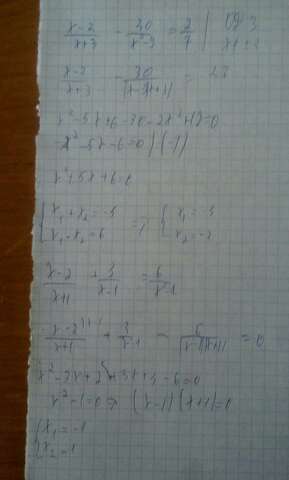 x-2/x+3 - 30/x²-9 = 2
x-2/x+3 - 30/(x-3)(x+3) =
x²-5x+6-30-2x²+18=0
-x²-5x-6=0 | (-1)
x²+5x+6=0
{ x₁+x₂=-5 x₁·x₂=6 => { x₁=-3 x₂=-2
x-2/x+1 + 3/x-1 = 6/x²-1
x-2/x+1 + 3/x-1 - 6/(x-1)(x+1) = 0
x²-3x+2+3x+3-6=0
x²-1=0 => (x-1)(x+1)=0
x₁=-1
x₂=1